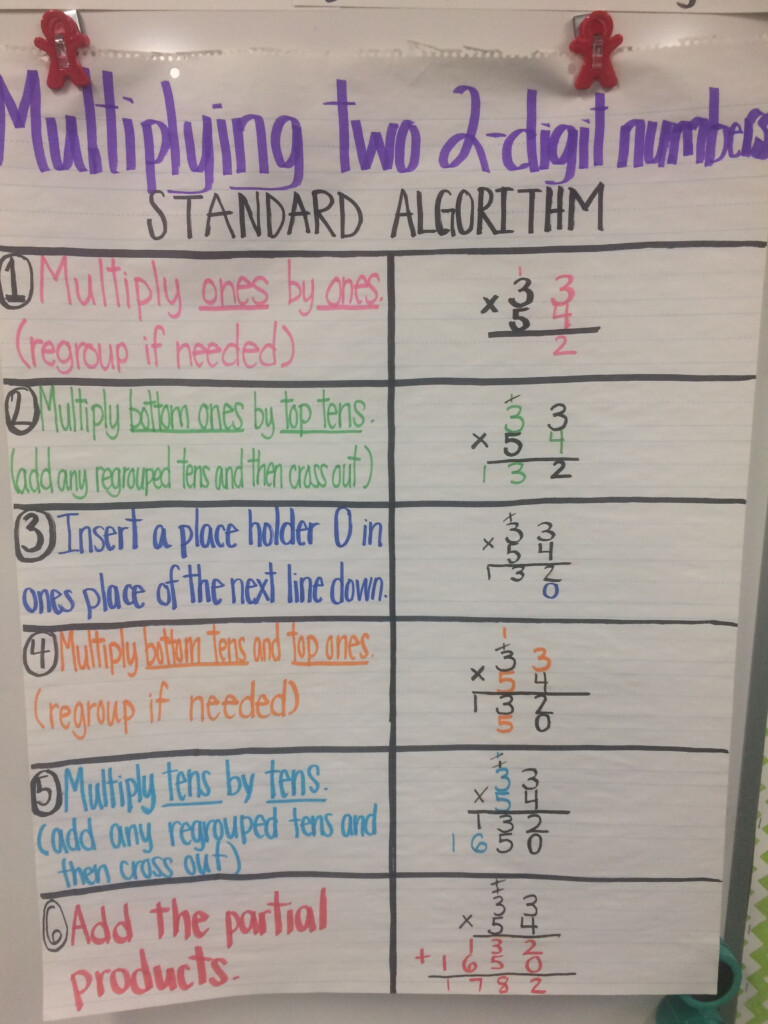 Multiplying two 2-digit numbers
STANDARD ALGORITHM
1 Multiply ones by ones.
(regroup if needed)
1
3 3
× 5 4
2
2 Multiply bottom ones by top tens.
(add any regrouped tens and then cross out)
1
3 3
× 5 4
1 3 2
3 Insert a place holder 0 in
ones place of the next line down.
1
3 3
× 5 4
1 3 2
0
4 Multiply bottom tens and top ones.
(regroup if needed)
1
1
3 3
× 5 4
1 3 2
5 0
5 Multiply tens by tens.
(add any regrouped tens and
then cross out)
1
1
3 3
× 5 4
1 3 2
1 6 5 0
6 Add the partial
products.
1
1
3 3
× 5 4
1 3 2
+ 1 6 5 0
1 7 8 2